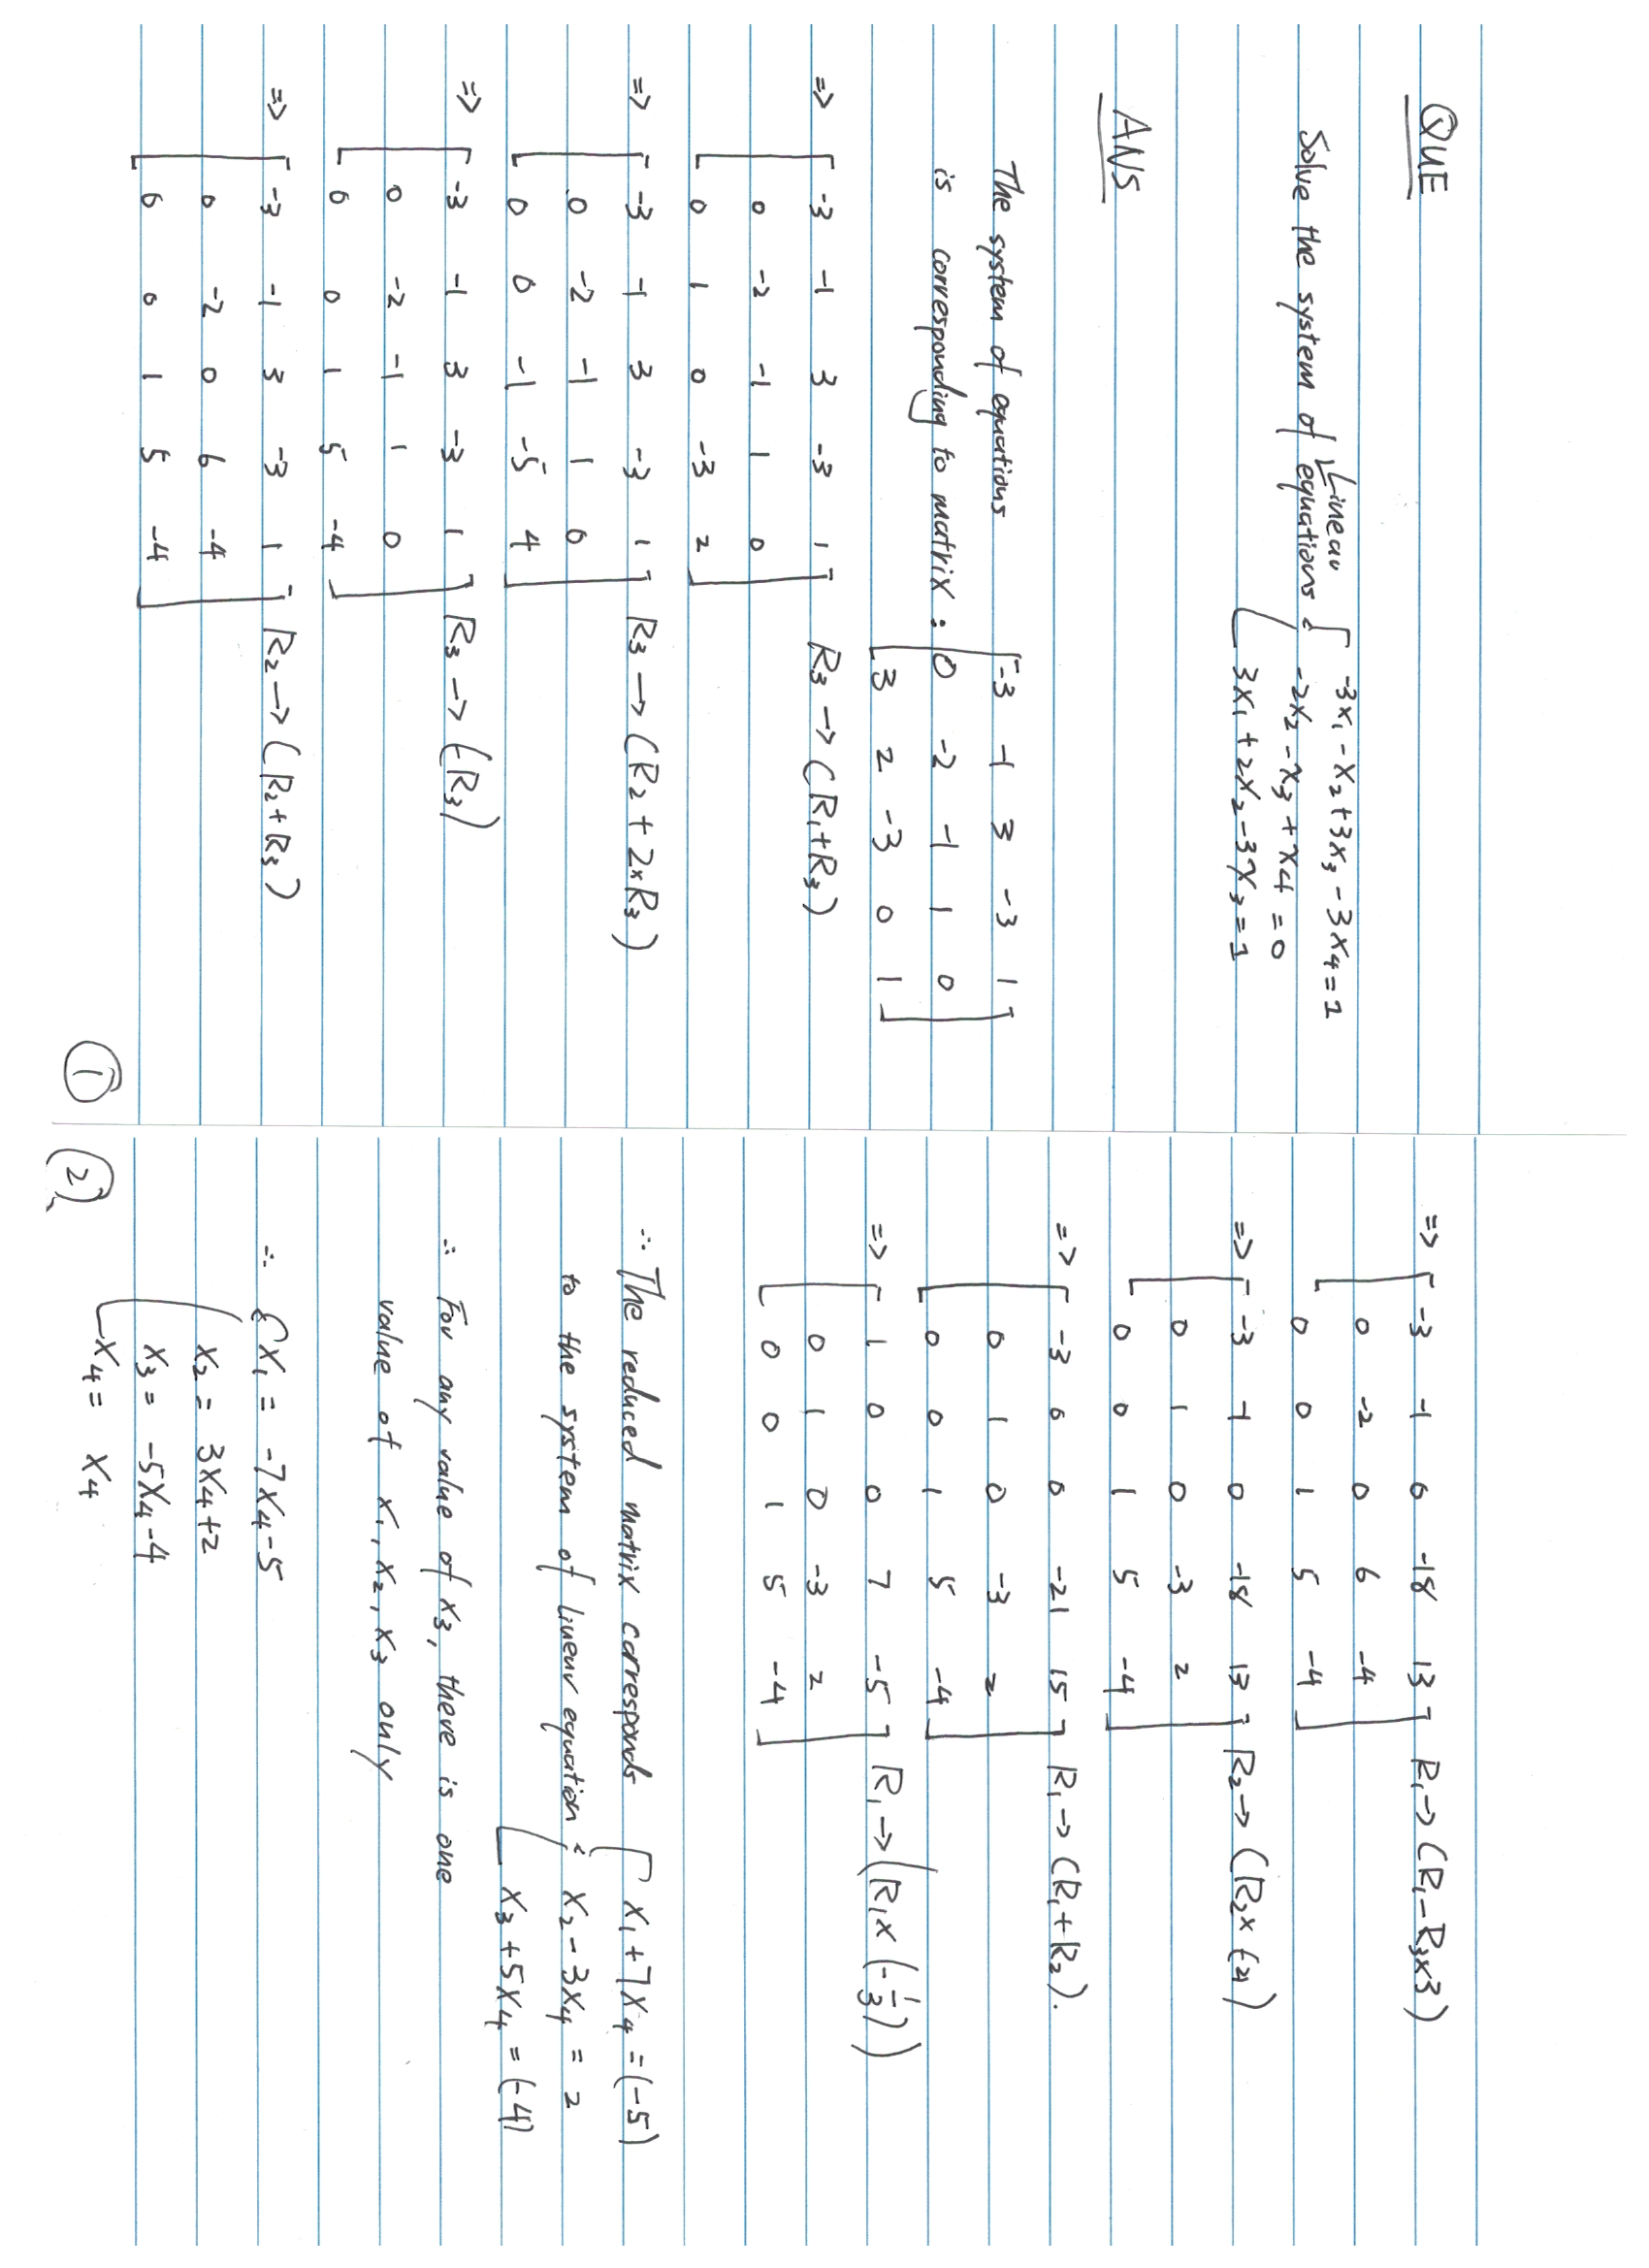 QUE
Solve the system of Linear equations :
-3x₁ - x₂ + 3x₃ - 3x₄ = 1
-2x₂ - x₃ + x₄ = 0
3x₁ + 2x₂ - 3x₃ = 1
ANS
The system of equations
is corresponding to matrix :
-3 -1 3 -3 1
0 -2 -1 1 0
3 2 -3 0 1
=> -3 -1 3 -3 1 R₃ → (R₁+R₃)
0 -2 -1 1 0
0 1 0 -3 2
=> -3 -1 3 -3 1 R₃ → (R₂ + 2×R₃)
0 -2 -1 1 0
0 0 -1 -5 4
=> -3 -1 3 -3 1 R₃ → (-R₃)
0 -2 -1 1 0
0 0 1 5 -4
=> -3 -1 3 -3 1 R₂ → (R₂+R₃)
0 -2 0 6 -4
0 0 1 5 -4
①
=> -3 -1 0 -18 13 R₁ → (R₁-R₃×3)
0 -2 0 6 -4
0 0 1 5 -4
=> -3 -1 0 -18 13 R₂ →
0 1 0 -3 2
0 0 1 5 -4
=> -3 0 0 -21 15 R₁ → (R₁+R₂).
0 1 0 -3 2
0 0 1 5 -4
=> 1 0 0 7 -5 R₁ → (R₁×(-1/3))
0 1 0 -3 2
0 0 1 5 -4
∴ The reduced matrix corresponds
to the system of linear equation :
x₁ + 7x₄ = (-5)
x₂ - 3x₄ = 2
x₃ + 5x₄ = (-4)
∴ For any value of x₃, there is one
value of x₁, x₂, x₃ only
∴ x₁ = -7x₄-5
x₂ = 3x₄+2
x₃ = -5x₄-4
x₄ = x₄
②